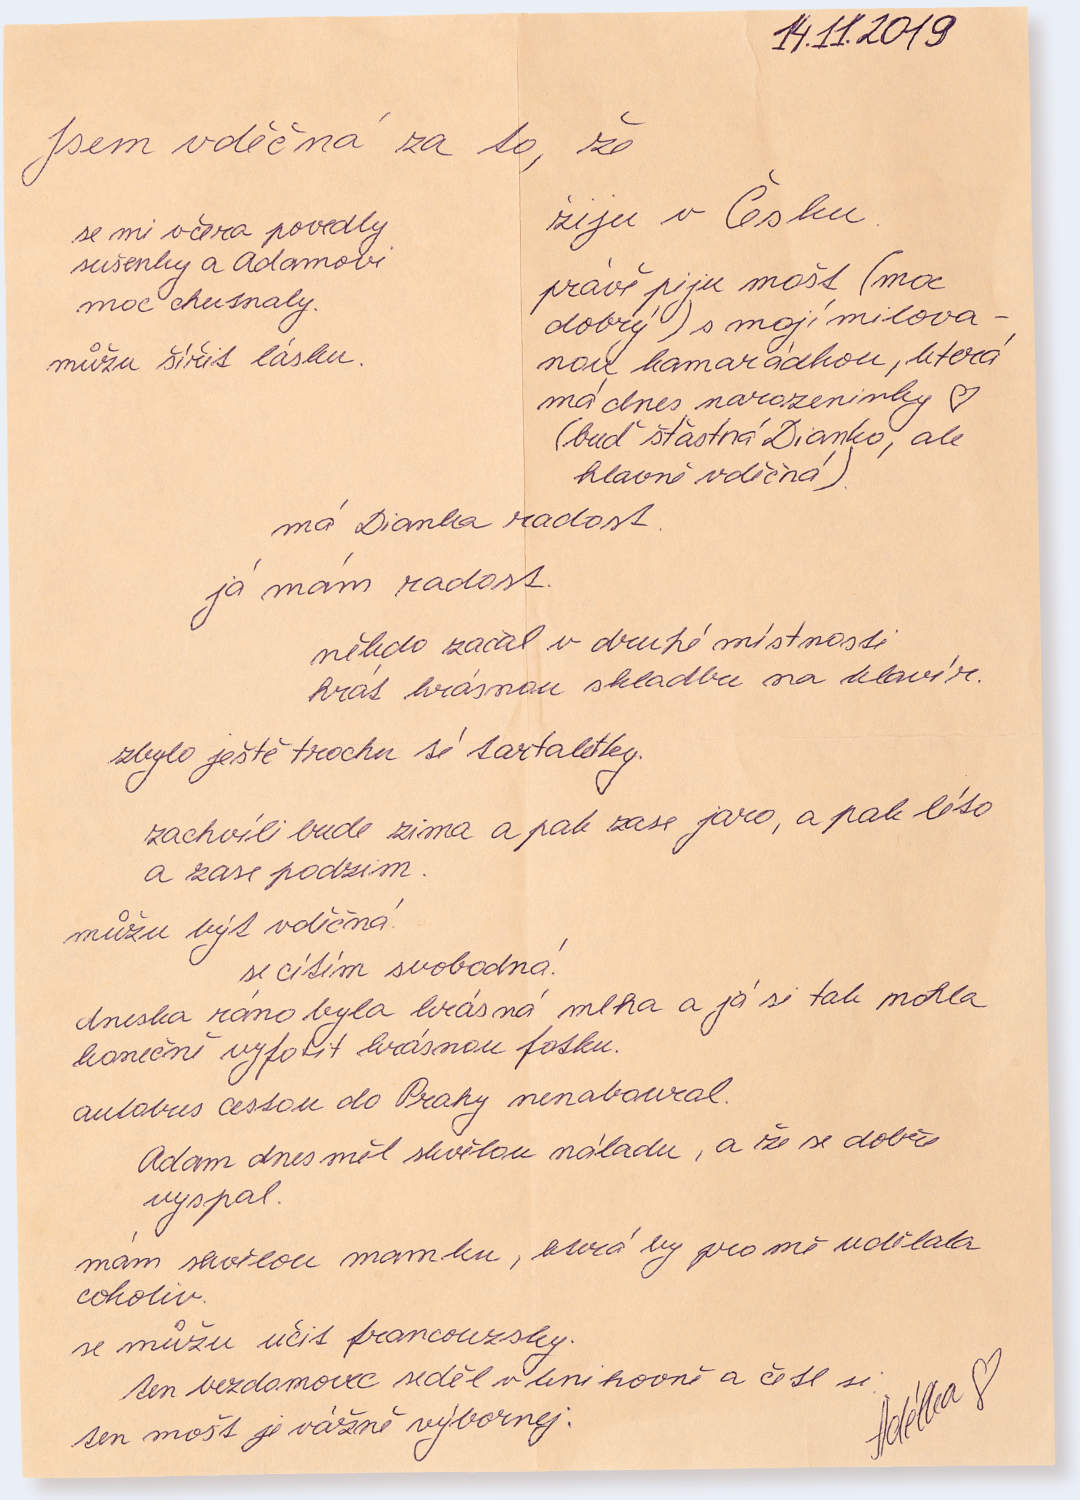 14.11.2019
Jsem vděčná za to, že
se mi včera povedly
sušenky a Adamovi
moc chutnaly.
můžu šířit lásku.
žiju v Česku.
právě piju mošt (moc
dobrý) s mojí milova-
nou kamarádkou, která
má dnes narozeninky ♡
(buď šťastná Dianko, ale
hlavně vděčná).
má Dianka radost.
já mám radost.
někdo začal v druhé místnosti
hrát krásnou skladbu na klavír.
zbylo ještě trochu té tartaletky.
zachvíli bude zima a pak zase jaro, a pak léto
a zase podzim.
můžu být vděčná.
se cítím svobodná.
dneska ráno byla krásná mlha a já si tak mohla
konečně vyfotit krásnou fotku.
autobus cestou do Prahy nenaboural.
Adam dnes měl skvělou náladu, a že se dobře
vyspal.
mám skvělou mamku, která by pro mě udělala
cokoliv.
se můžu učit francouzsky.
ten bezdomovec seděl v knihovně a četl si.
ten mošt je vážně výbornej.
Adélka ♡